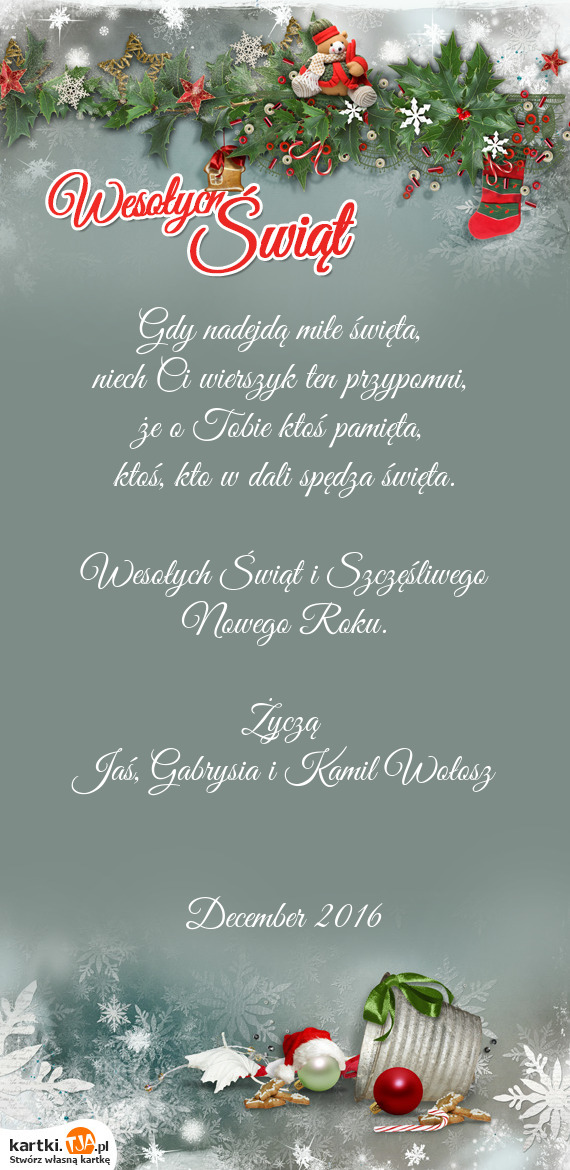 Wesołych
Świąt
Gdy nadejdą miłe święta,
niech Ci wierszyk ten przypomni,
że o Tobie ktoś pamięta,
ktoś, kto w dali spędza święta.
Wesołych Świąt i Szczęśliwego
Nowego Roku.
Życzą
Jaś, Gabrysia i Kamil Wołosz
December 2016
kartki.TJA.pl
Stwórz własną kartkę